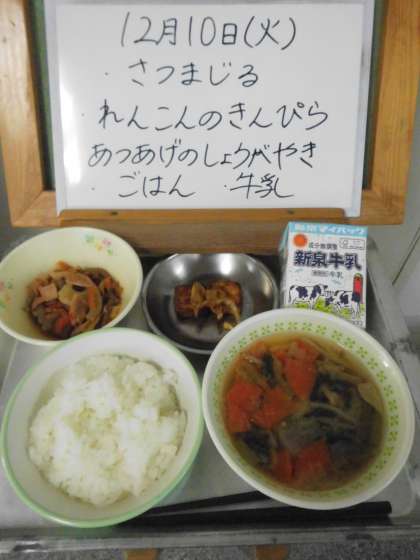 12月10日(火)
・さつまじる
・れんこんのきんぴら
あつあげのしょうがやき
・ごはん ・牛乳
新泉マイパック
成分無調整
新泉牛乳
牛乳